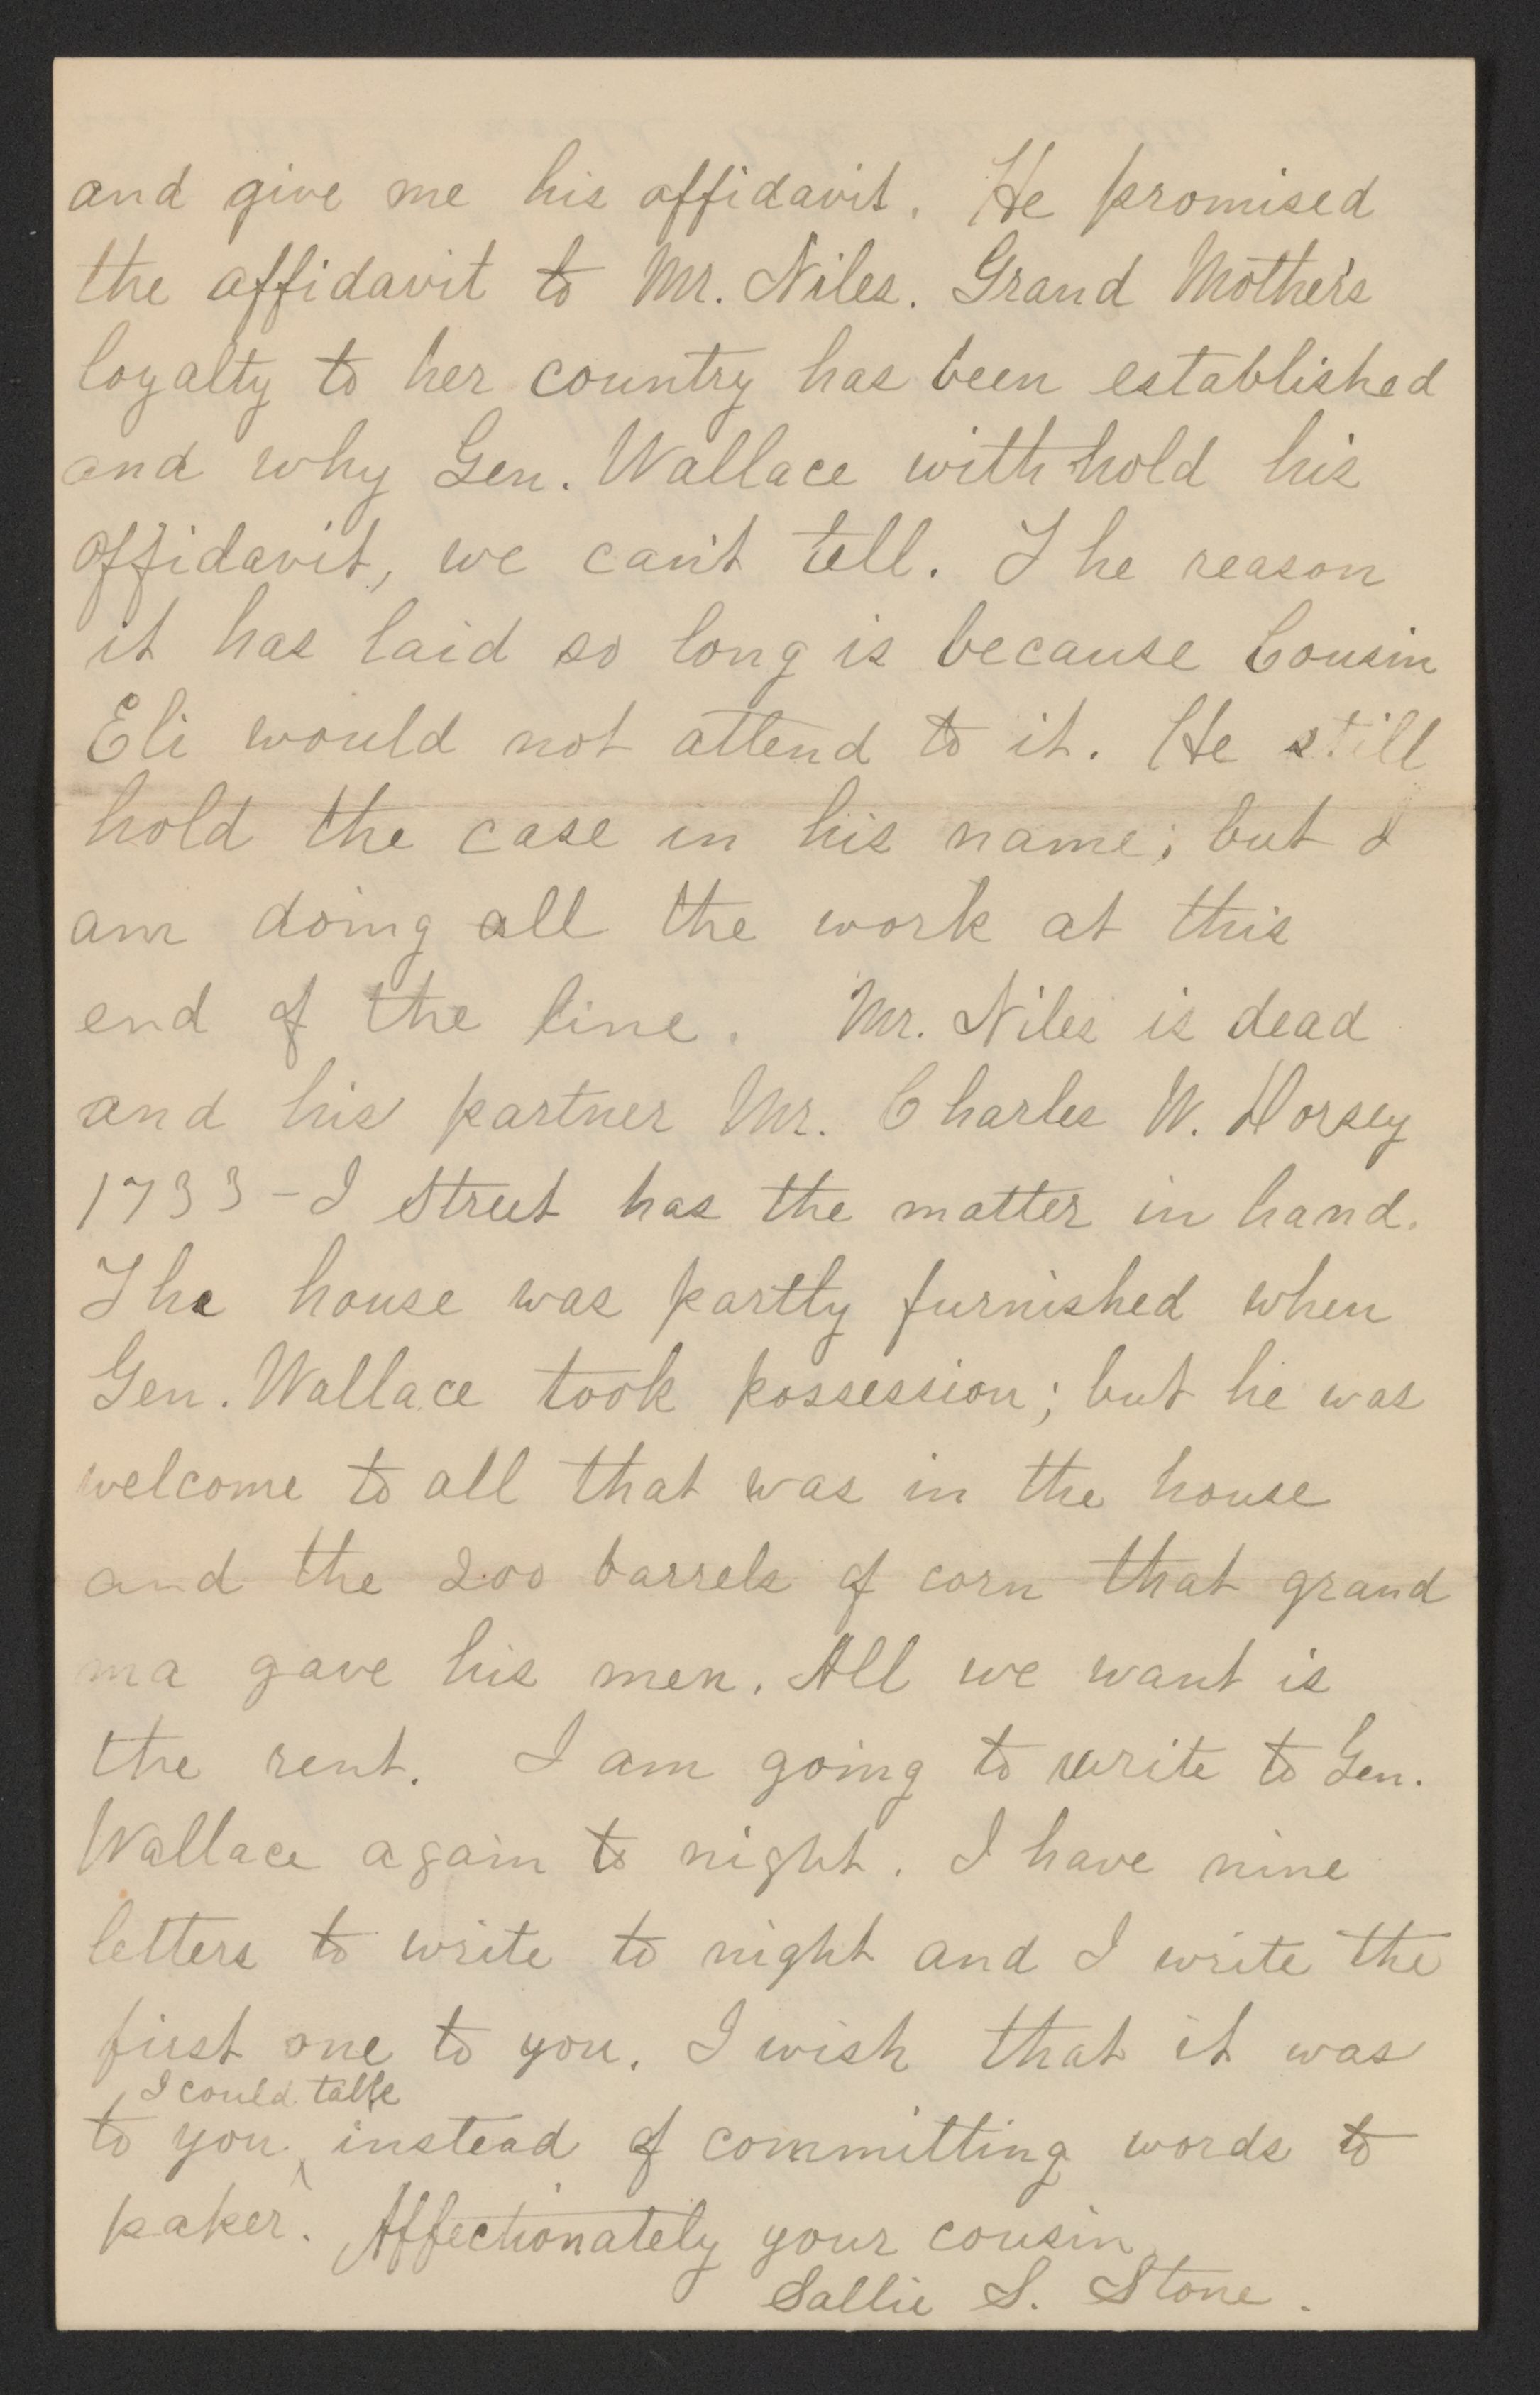 and give me his affidavit. He promised
the affidavit to Mr. Niles. Grand Mother's
loyalty to her country has been established
and why Gen. Wallace withhold his
affidavit, we can't tell. The reason
it has laid so long is because Cousin
Eli would not attend to it. He still
hold the case in his name; but I
am doing all the work at this
end of the line. Mr. Niles is dead
and his partner Mr. Charles W. Dorsey
1733 - I Street has the matter in hand.
The house was partly furnished when
Gen. Wallace took possession; but he was
welcome to all that was in the house
and the 200 barrels of corn that grand
ma gave his men. All we want is
the rent. I am going to write to Gen.
Wallace again to night. I have nine
letters to write to night and I write the
first one to you. I wish that it was
I could talk
to you, instead of committing words to
paper. Affectionately your cousin
Sallie S. Stone.